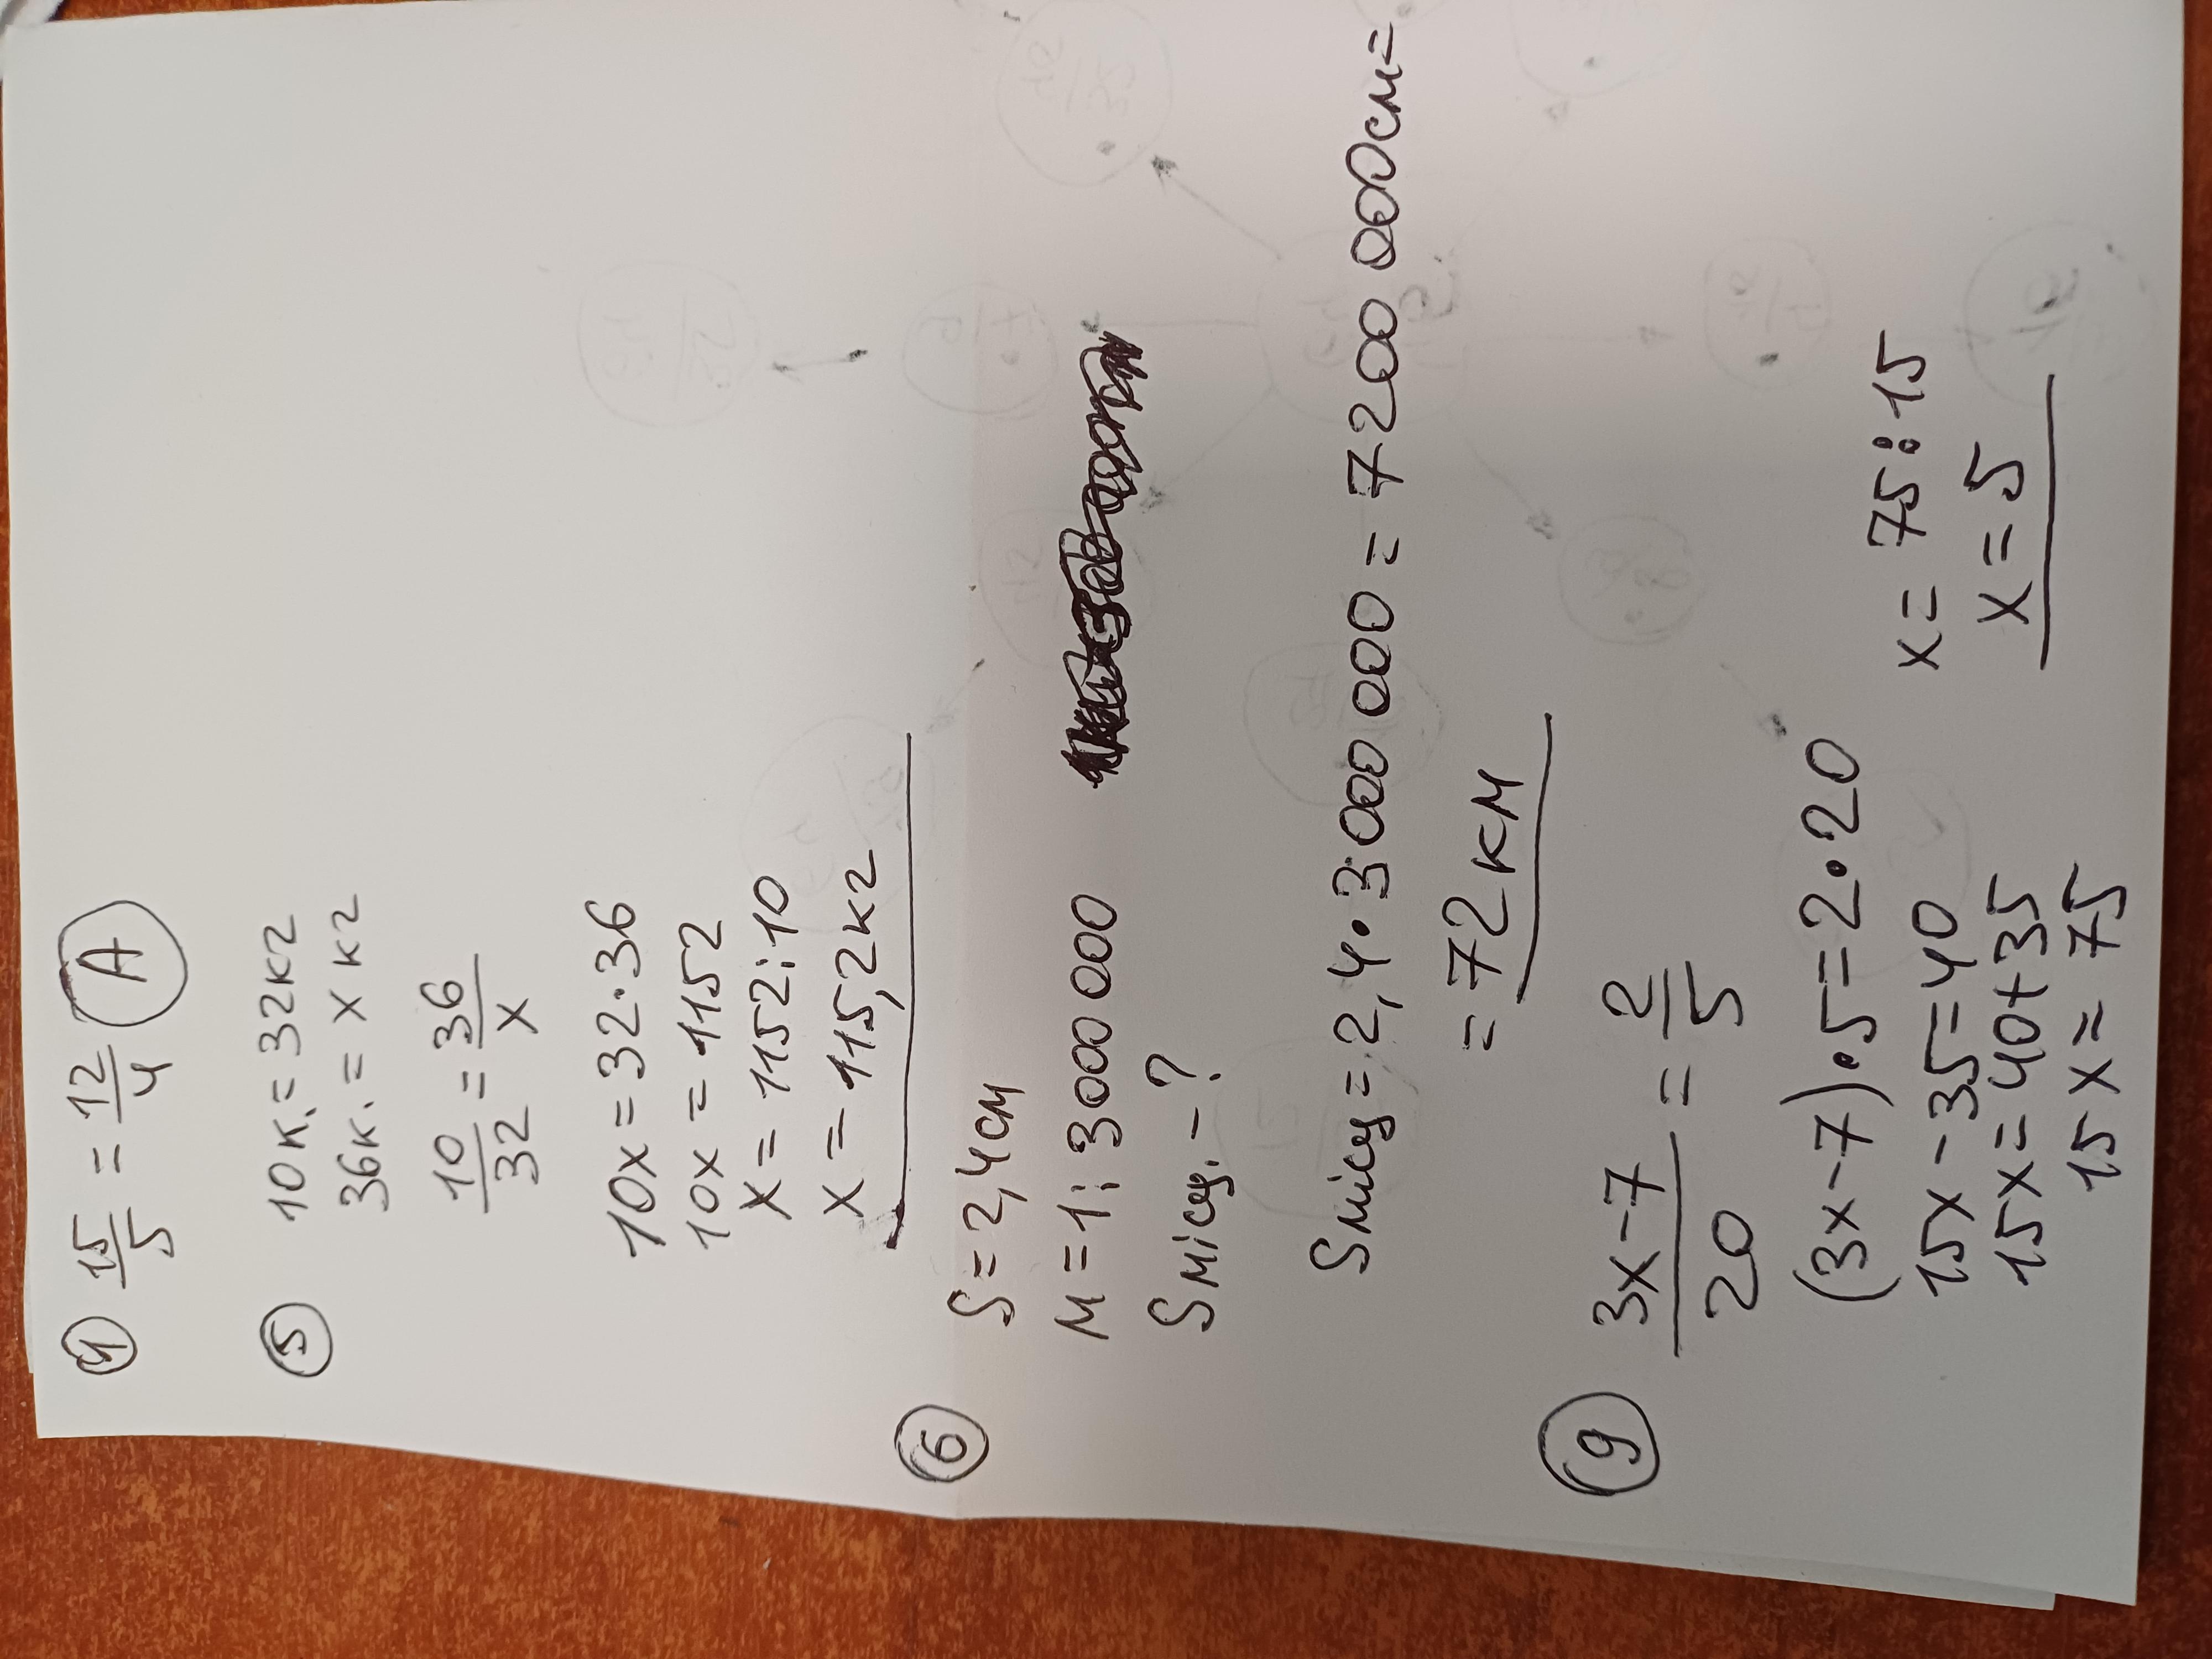 ④ 15/5 = 12/4 Ⓐ
⑤ 10к. = 32кг
36к. = x кг
10/32 = 36/x
10x = 32·36
10x = 1152
x = 1152:10
x = 115,2кг
⑥ S = 2,4см
М = 1:3000 000
Sмісц. - ?
Sмісц = 2,4·3000 000 = 7200 000см =
= 72км
⑨ (3x-7)/20 = 2/5
(3x-7)·5 = 2·20
15x-35=40
15x=40+35
15x=75
x = 75:15
x = 5